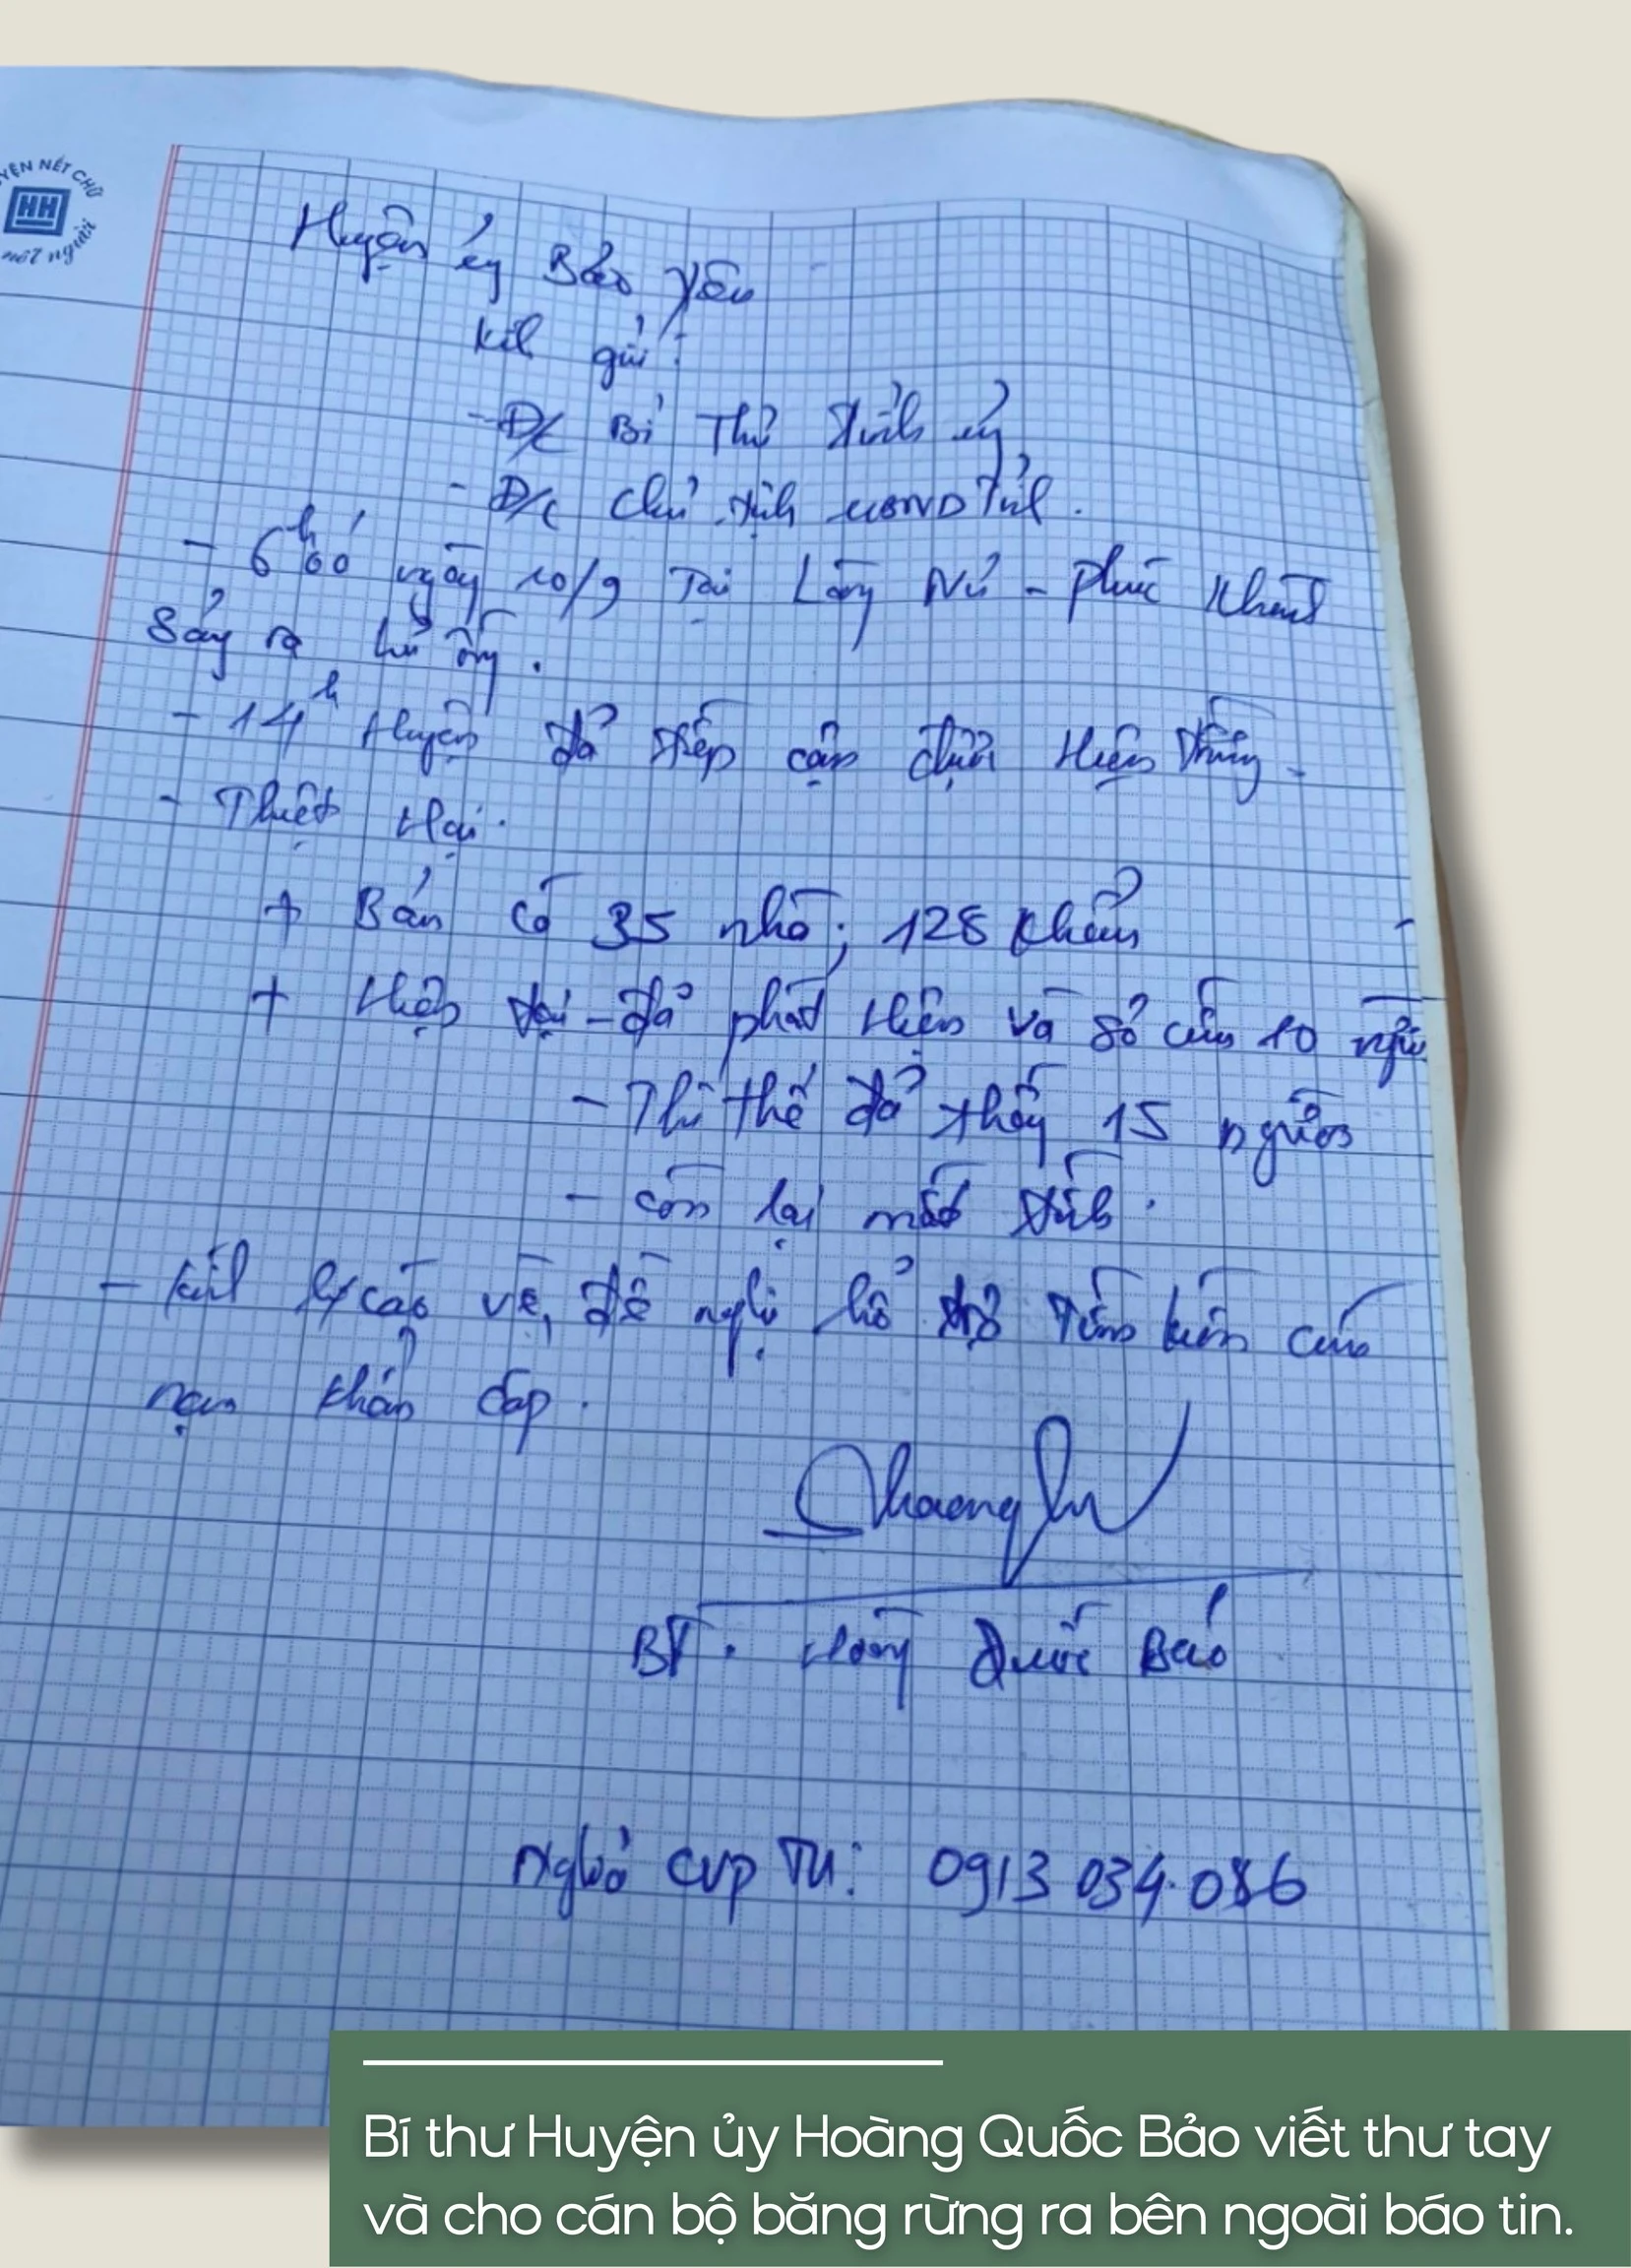 YỆN NÉT CHỮ
HH
nết người
Huyện ủy Bảo Yên
Kính gửi:
- Đ/c Bí Thư Tỉnh ủy
- Đ/c Chủ tịch UBND Tỉnh.
- 6h00 ngày 10/9 Tại Làng Nủ - Phúc Khánh
Sảy ra lũ ống.
- 14h Huyện đã tiếp cận được Hiện trường -
- Thiệt Hại.
+ Bản có 35 nhà; 128 khẩu
+ Hiện tại - đã phát hiện và sơ cứu 10 người
- Thi thể đã thấy 15 người
- còn lại mất tích.
- Kính b/cáo về, đề nghị hỗ trợ tìm kiếm cứu
nạn khẩn cấp.
BT. Hoàng Quốc Bảo
Nghĩa CVP TU: 0913 034.086
Bí thư Huyện ủy Hoàng Quốc Bảo viết thư tay
và cho cán bộ băng rừng ra bên ngoài báo tin.